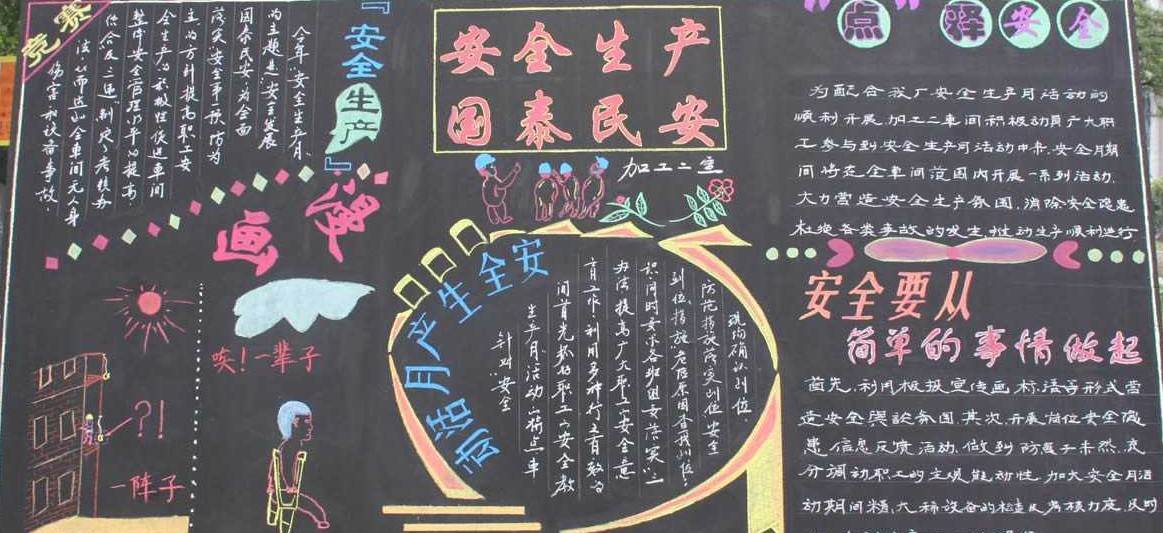 安全生产
国泰民安
加工二车
竞赛
『安全生产』
今年“安全生产月”
为主题进“安全发展
国泰民安”为全面
落实“安全第一预防为
主”的方针提高职工安
全生产的积极性促进车间
整体安全管理水平的提高
法，从而达到全车间无人身
伤害和设备事故。
漫画
唉！一辈子
?!
一阵子
安全生产月活动
针对“安全
生产月”活动
间首先抓好职工的安全教
育工作，利用多种行之有效的
办法提高广大职工安全意
识，同时要求各班组要落实“三
到位”
防范措施落实到位
现场确认到位
“点”
释安全
为配合我厂安全生产月活动的
顺利开展，加工二车间积极动员广大职
工参与到安全生产月活动中来，安全月期
间将在全车间范围内开展一系列活动，
大力营造安全生产氛围，消除安全隐患
杜绝各类事故的发生，推动生产顺利进行
安全要从
简单的事情做起
首先，利用板报宣传画、标语等形式营
造安全舆论氛围，其次，开展岗位安全隐
患信息反馈活动，做到防患于未然，充
分调动职工的主观能动性，加大安全月活
动期间精、大、稀设备的检查及考核力度，及时